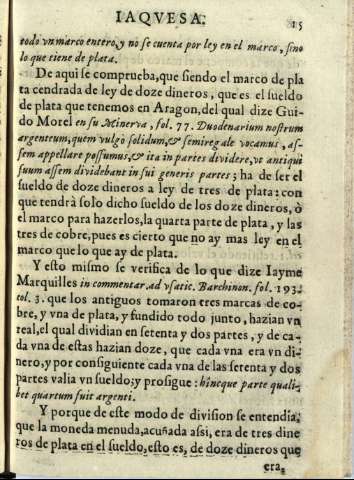 IAQVESA. 15
todo vn marco entero, y no se cuenta por ley en el marco, sino
lo que tiene de plata.
De aqui se comprueba, que siendo el marco de pla
ta cendrada de ley de doze dineros, que es el sueldo
de plata que tenemos en Aragon, del qual dize Gui-
do Morel en su Minerva, fol. 77. Duodenarium nostrum
argenteum, quem vulgò solidum, & semiregale vocamus, as-
sem appellare possumus, & ita in partes dividere, vt antiqui
suum assem dividebant in sui generis partes; ha de ser el
sueldo de doze dineros a ley de tres de plata: con
que tendrà solo dicho sueldo de los doze dineros, ò
el marco para hazerlos, la quarta parte de plata, y las
tres de cobre, pues es cierto que no ay mas ley en el
marco que lo que ay de plata.
Y esto mismo se verifica de lo que dize Iayme
Marquilles in commentar. ad vsatic. Barchinon. fol. 193.
col. 3. que los antiguos tomaron tres marcas de co-
bre, y vna de plata, y fundido todo junto, hazian vn
real, el qual dividian en setenta y dos partes, y de ca-
da vna de estas hazian doze, que cada vna era vn di-
nero, y por consiguiente cada vna de las setenta y dos
partes valia vn sueldo; y prosigue: hincque parte quali-
bet quartum fuit argenti.
Y porque de este modo de division se entendia,
que la moneda menuda, acuñada assi, era de tres dine
ros de plata en el sueldo, esto es, de doze dineros que
era,